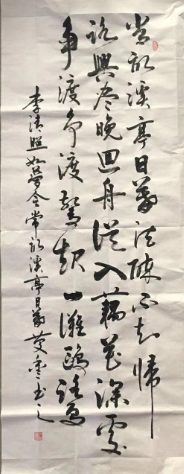 常記溪亭日暮沈醉不知歸
路興盡晚回舟誤入藕花深處
爭渡爭渡驚起一灘鷗鷺
李清照如夢令常記溪亭日暮